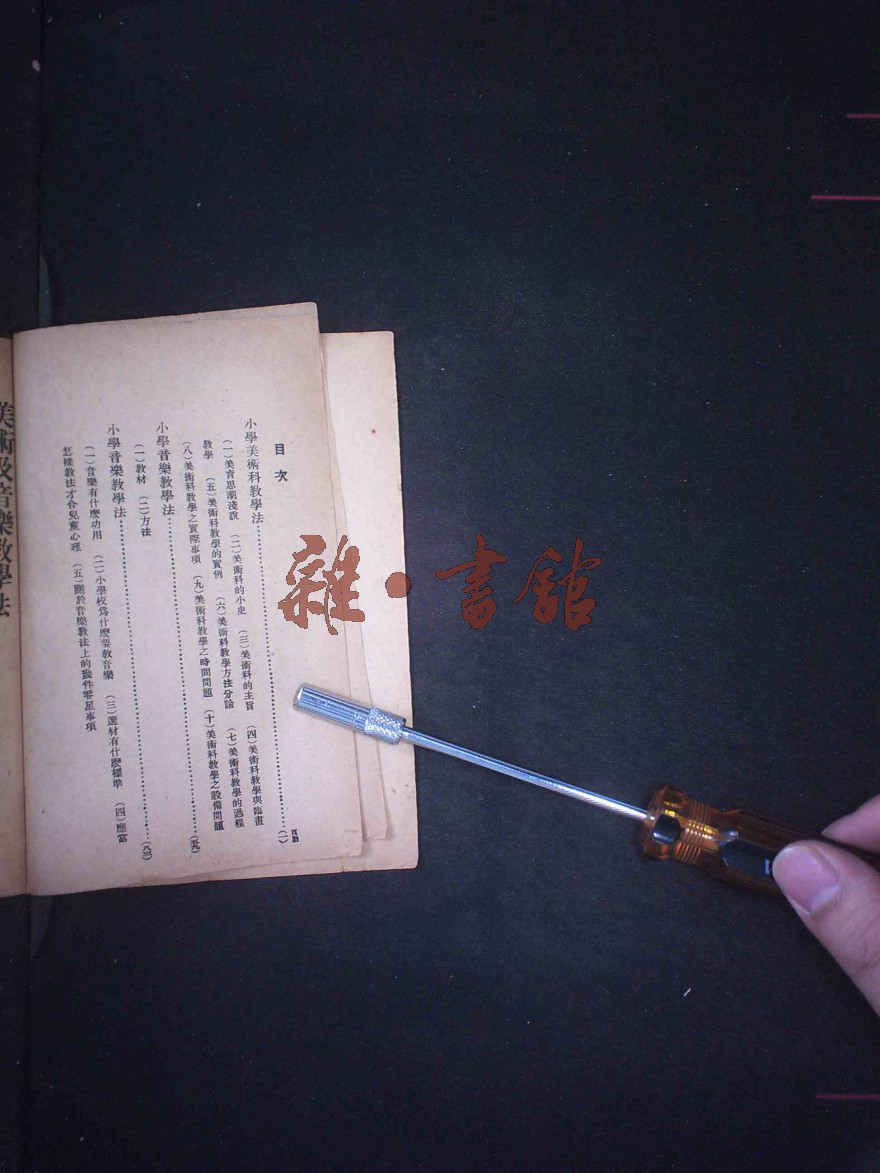 目次
頁數
小學美術科教學法……(一)
(一)美育思潮淺說 (二)美術科的小史 (三)美術科的主旨 (四)美術科教學與臨畫
教學 (五)美術科教學的實例 (六)美術科教學方法分論 (七)美術科教學的過程
(八)美術科教學之實際事項 (九)美術科教學之時間問題 (十)美術科教學之設備問題
小學音樂教學法……(五九)
(一)教材 (二)方法
小學音樂教學法……(八三)
(一)音樂有什麼功用 (二)小學校爲什麼要教音樂 (三)選材有什麼標準 (四)應當
怎樣教法才合兒童心理 (五)關於音樂教法上的幾件零星事項
美術及音樂教學法
雜·書館